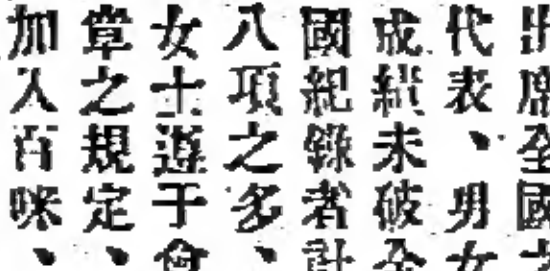 出席全國大
代表、男女
成績未破全
國紀錄者計
八項之多、
女士遊于會
章之規定、
加入百咪、